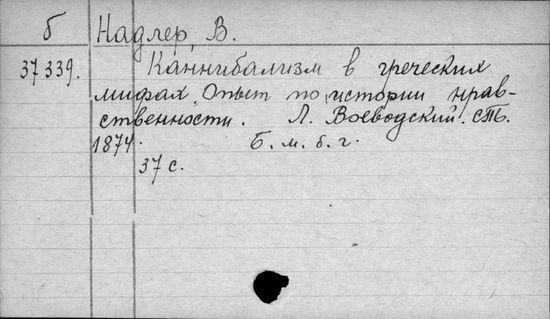 б Надлер, В.
37339. Каннибализм в греческих
мифах. Опыт по истории нрав-
ственности. Л. Воеводский. СПб.
1874. Б. м. б. г.
37 с.